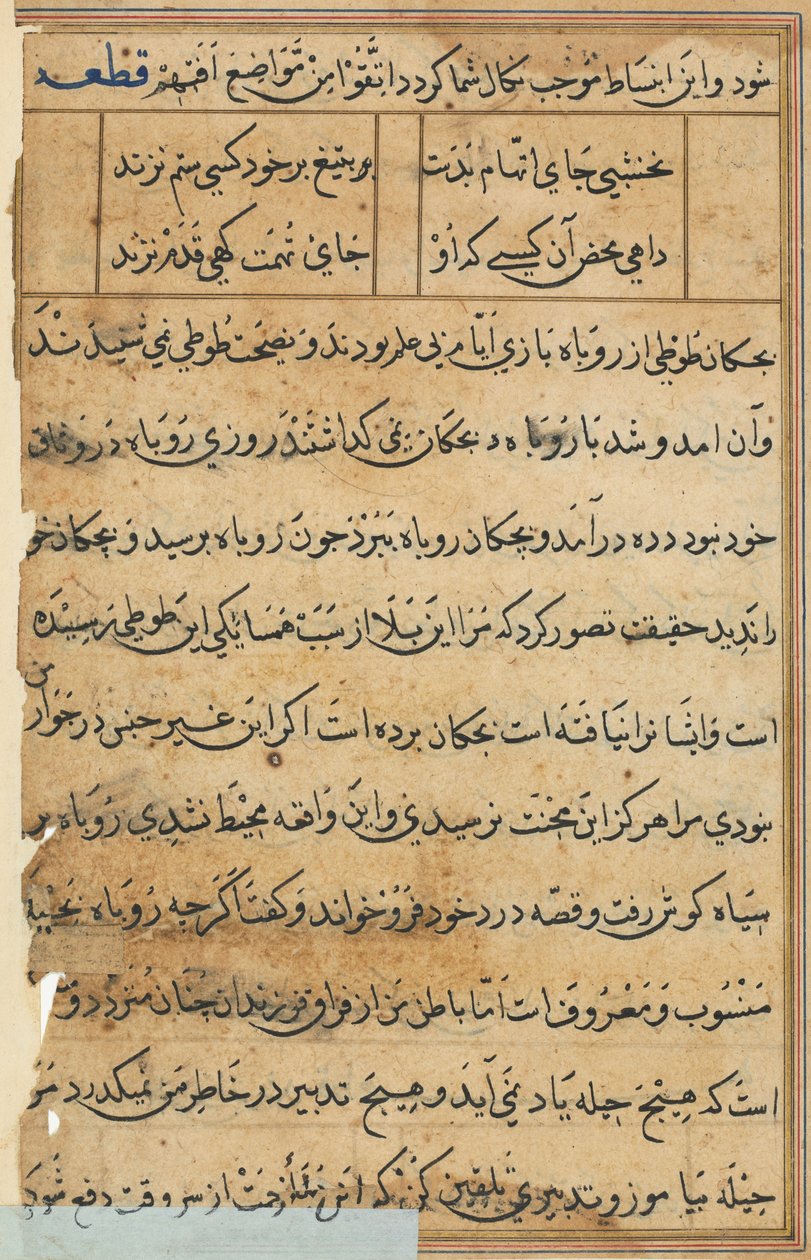 شود واین انبساط موجب نکال شما کردد اتَّقُوْا مِنْ مَّوَاضِعَ قطعه
نخشبی جای اتهام بدست بر بتیغ بر خود کسی ستم نزند
داهی محض آن کیسے که اُوْ جای تُهمت کهی قَدَمْ نزند
بجکان طُوطْی از روباه بازی ایّام بی علم بودند و نصیحت طوطی نمی شنیدند
وآن امد و شد با رُوباه بجکان نمی کداشتند روزی رُوباه در وثاق
خود نبود دده در آمد و بچکان روباه ببُرْد جون روباه برسید و بچکان خو
را ندید حقیقت تصور کرد که مرا این بلا از سبب همسایکی این طوطی رسیده
است و ایشا نرا نیافته است بجکان برده است اکر این غیر جنس در جوار من
نبودی مرا هرکز این محنت نرسیدی و این واقعه محیط نشدی رُوباه بر
سیاه کوش رفت و قصّه درد خود فرو خواند و کفت اکرجه رُوباه بحیله
منسوب و معروف است امّا باطن من از فراق فرزندان چنان
است که هیچ حیله یاد نمی آید و هیچ تدبیر در خاطر من نمیکدرد مرا
حیله بیا موز و تدبیری تلقین کن که این زحمت از سر وقت دفع شود